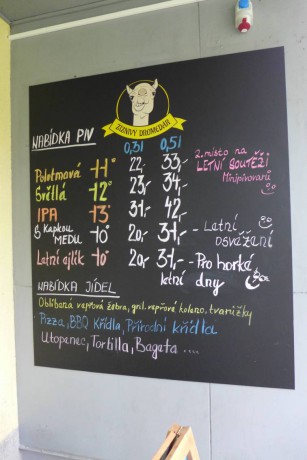 ŽÍZNIVÝ DROMEDÁR
NABÍDKA PIV 0,3l 0,5l
Polotmavá 11° 22,- 33,-
Světlá 12° 23,- 34,-
IPA 13° 31,- 42,-
S kapkou MEDU 10° 20,- 31,- Letní osvěžení
Letní ejlík 10° 20,- 31,- Pro horké letní dny
2. místo na LETNÍ SOUTĚŽI Minipivovarů
NABÍDKA JÍDEL
Oblíbená vepřová žebra, gril. vepřové koleno, tvarůžky
Pizza, BBQ Křídla, Přírodní křídla
Utopenec, Tortilla, Bageta ....